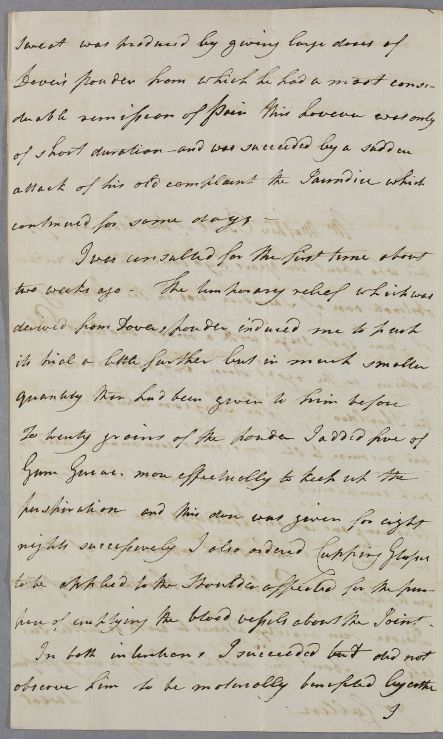 sweat was produced by giving large doses of
Dover's Powder from which he had a most consi-
derable remission of Pain this however was only
of short duration - and was succeeded by a sudden
attack of his old complaint the Jaundice which
continued for some days -
I was consulted for the first time about
two weeks ago - The temporary relief which was
derived from Dovers powder induced me to push
its trial a little further but in much smaller
quantity than had been given to him before
To twenty grains of the powder I added five of
Gum Guaiac. more effectually to keep up the
perspiration and this dose was given for eight
nights successively I also ordered Cupping Glasses
to be applied to the Shoulder affected for the pur-
pose of emptying the blood vessels about the Joint.
In both intentions I succeeded but did not
observe him to be materially benefited by either
I